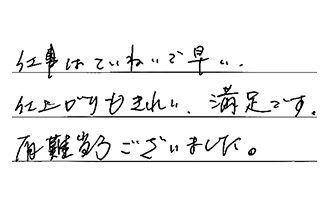 仕事はていねいで早い、
仕上がりもきれい、満足です。
有難うございました。